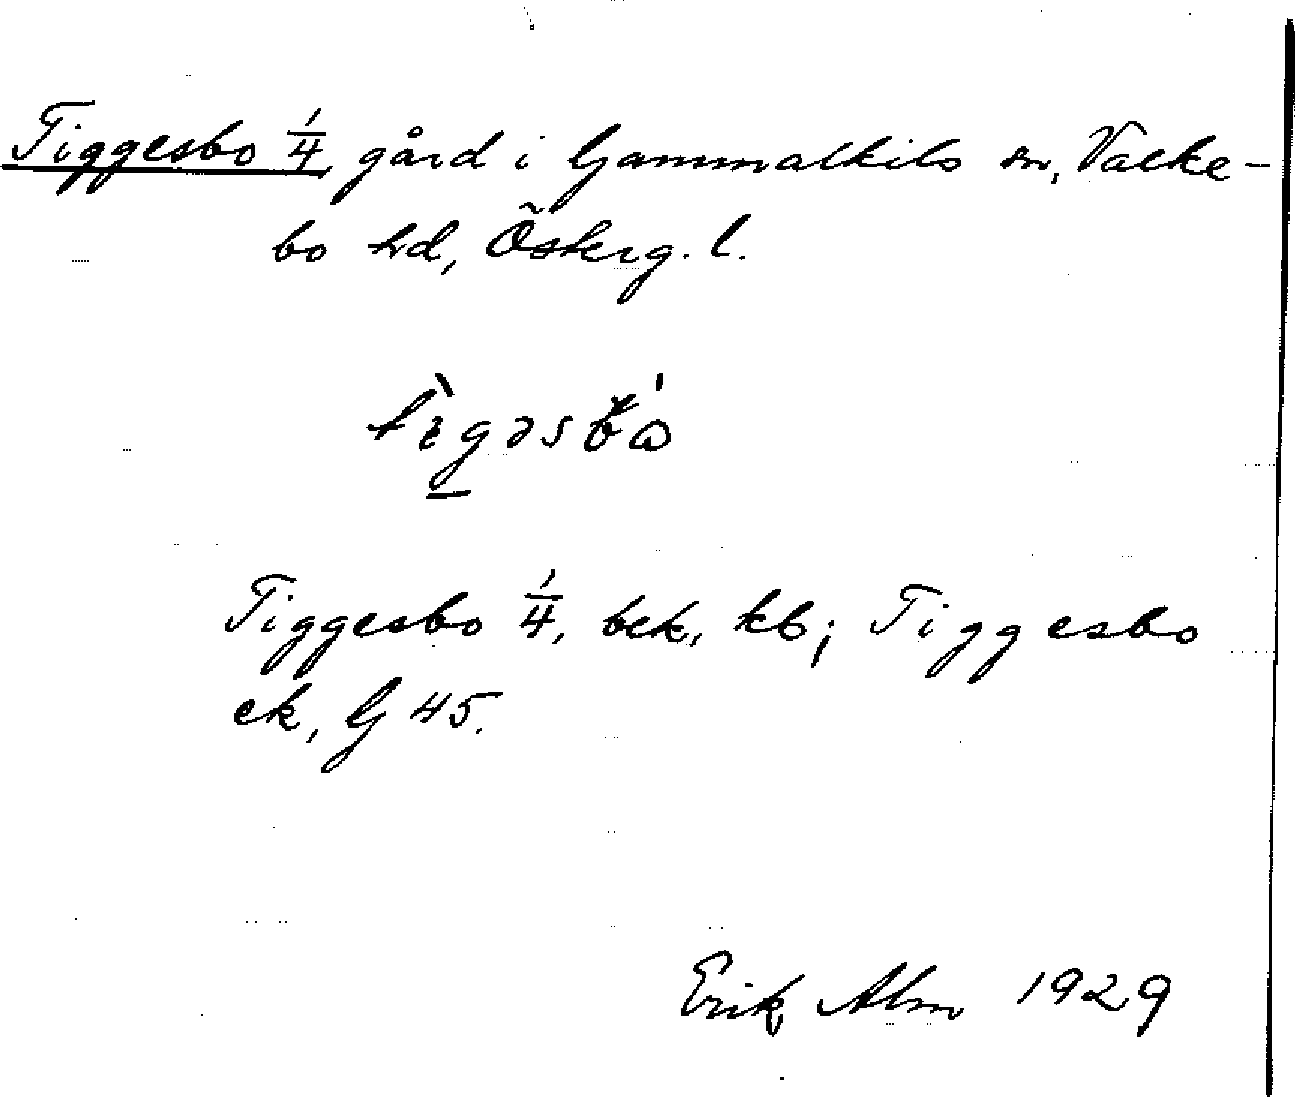 Tiggesbo 1/4, gård i Gammalkils sn, Valke-
bo hd, Österg. l.
Tiggesbo 1/4, bek, kb; Tiggesbo
ek, G 45.
Erik Alm 1929